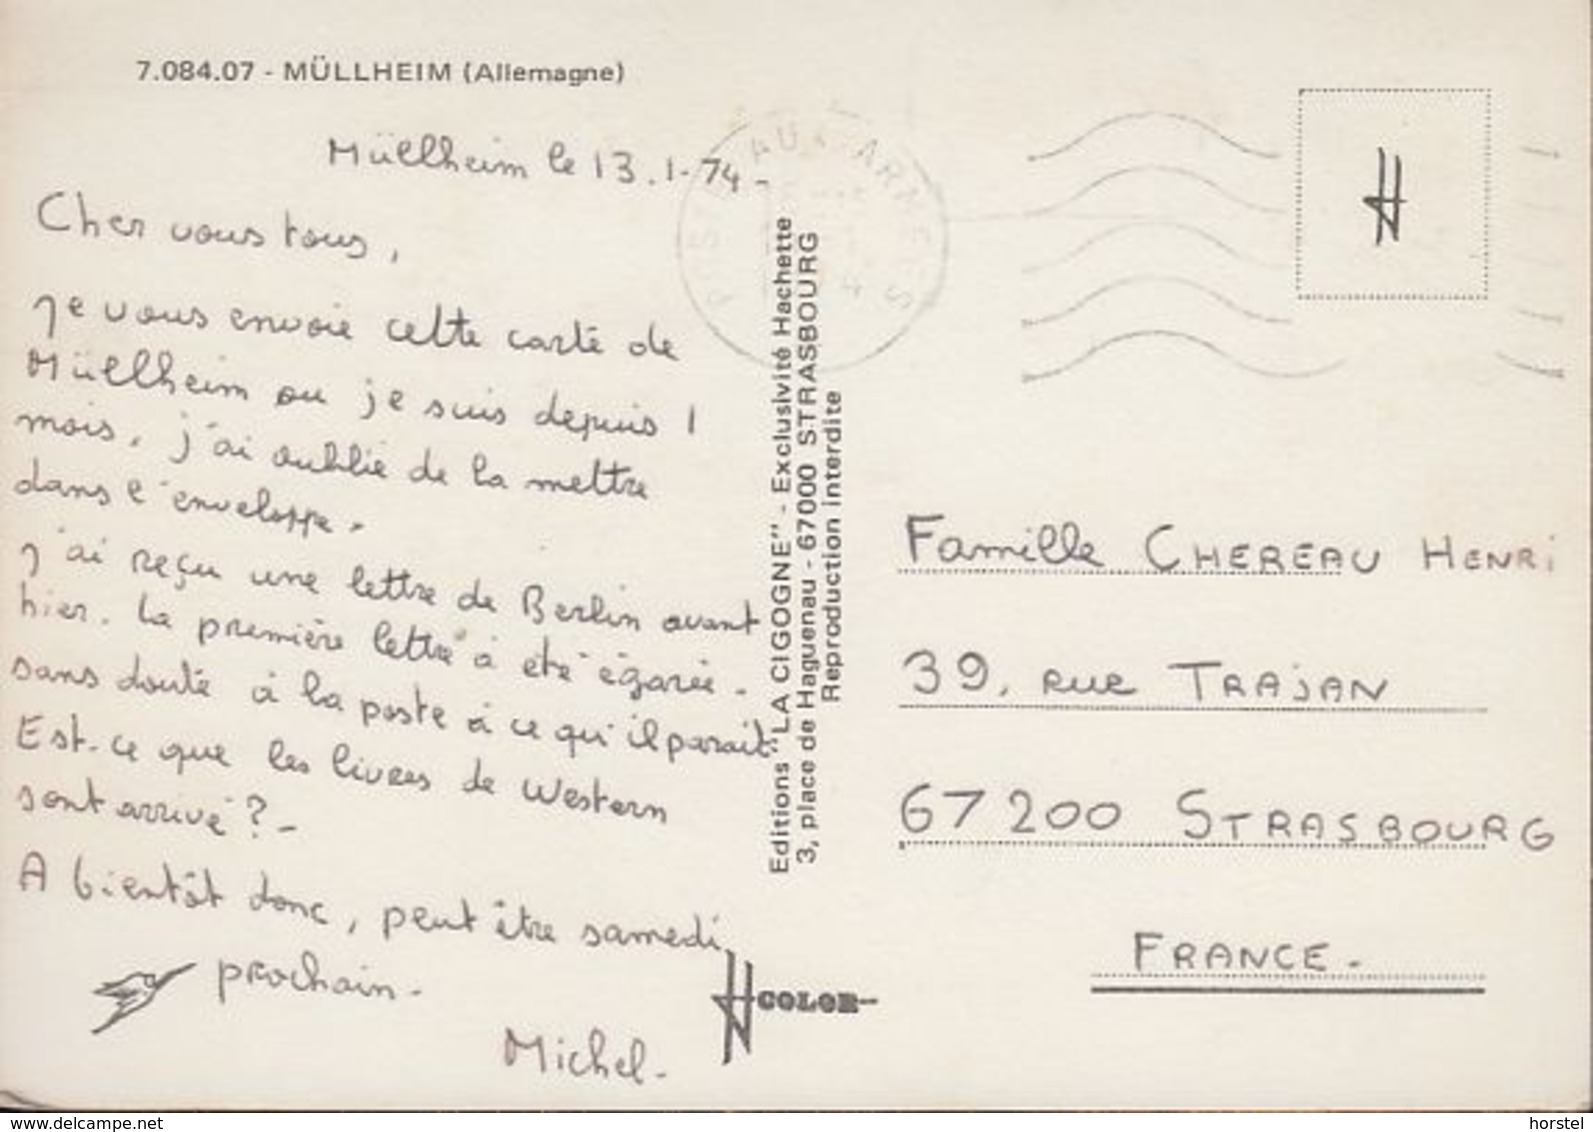 7.084.07 - MÜLLHEIM (Allemagne)
Müllheim le 13.1-74-
Cher vous tous,
je vous envoie cette carte de
Müllheim ou je suis depuis 1
mois, j'ai oublié de la mettre
dans l'enveloppe.
J'ai reçu une lettre de Berlin avant
hier. La première lettre a été égarée.
sans doute à la poste à ce qu'il parait.
Est-ce que les livres de Western
sont arrivé ? -
A bientôt donc, peut être samedi
prochain.
Michel-
COLOR
POSTE AUX ARMEES
Editions "LA CIGOGNE" - Exclusivité Hachette
3, place de Haguenau - 67000 STRASBOURG
Reproduction interdite
Famille CHEREAU HENRi
39, RUE TRAJAN
67200 STRASBOURG
FRANCE-
www.delcampe.net
horstel